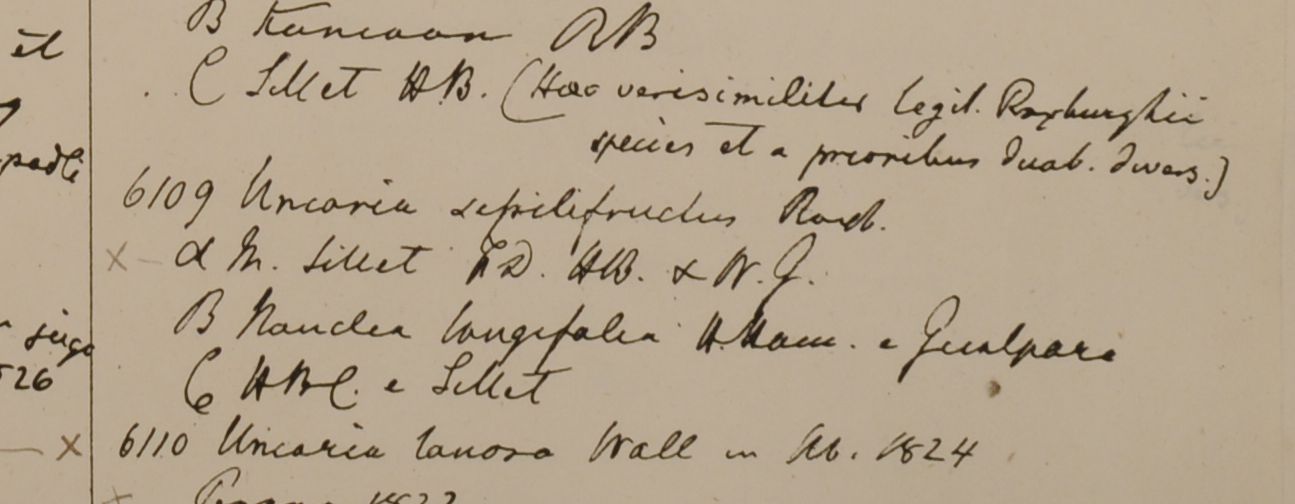 et
B Kamaoon RB
C Sillet HB. (Haec verisimiliter legit. Roxburghii
species et a prioribus duab. divers.)
padli
6109 Uncaria sessilifructus Roxb.
× – α M. Sillet FD. HB. & W. G.
B Nauclea longifolia H.Ham. e Gualpara
526
C HBC. e Sillet
— × 6110 Uncaria lanosa Wall in Hb. 1824
× 1822